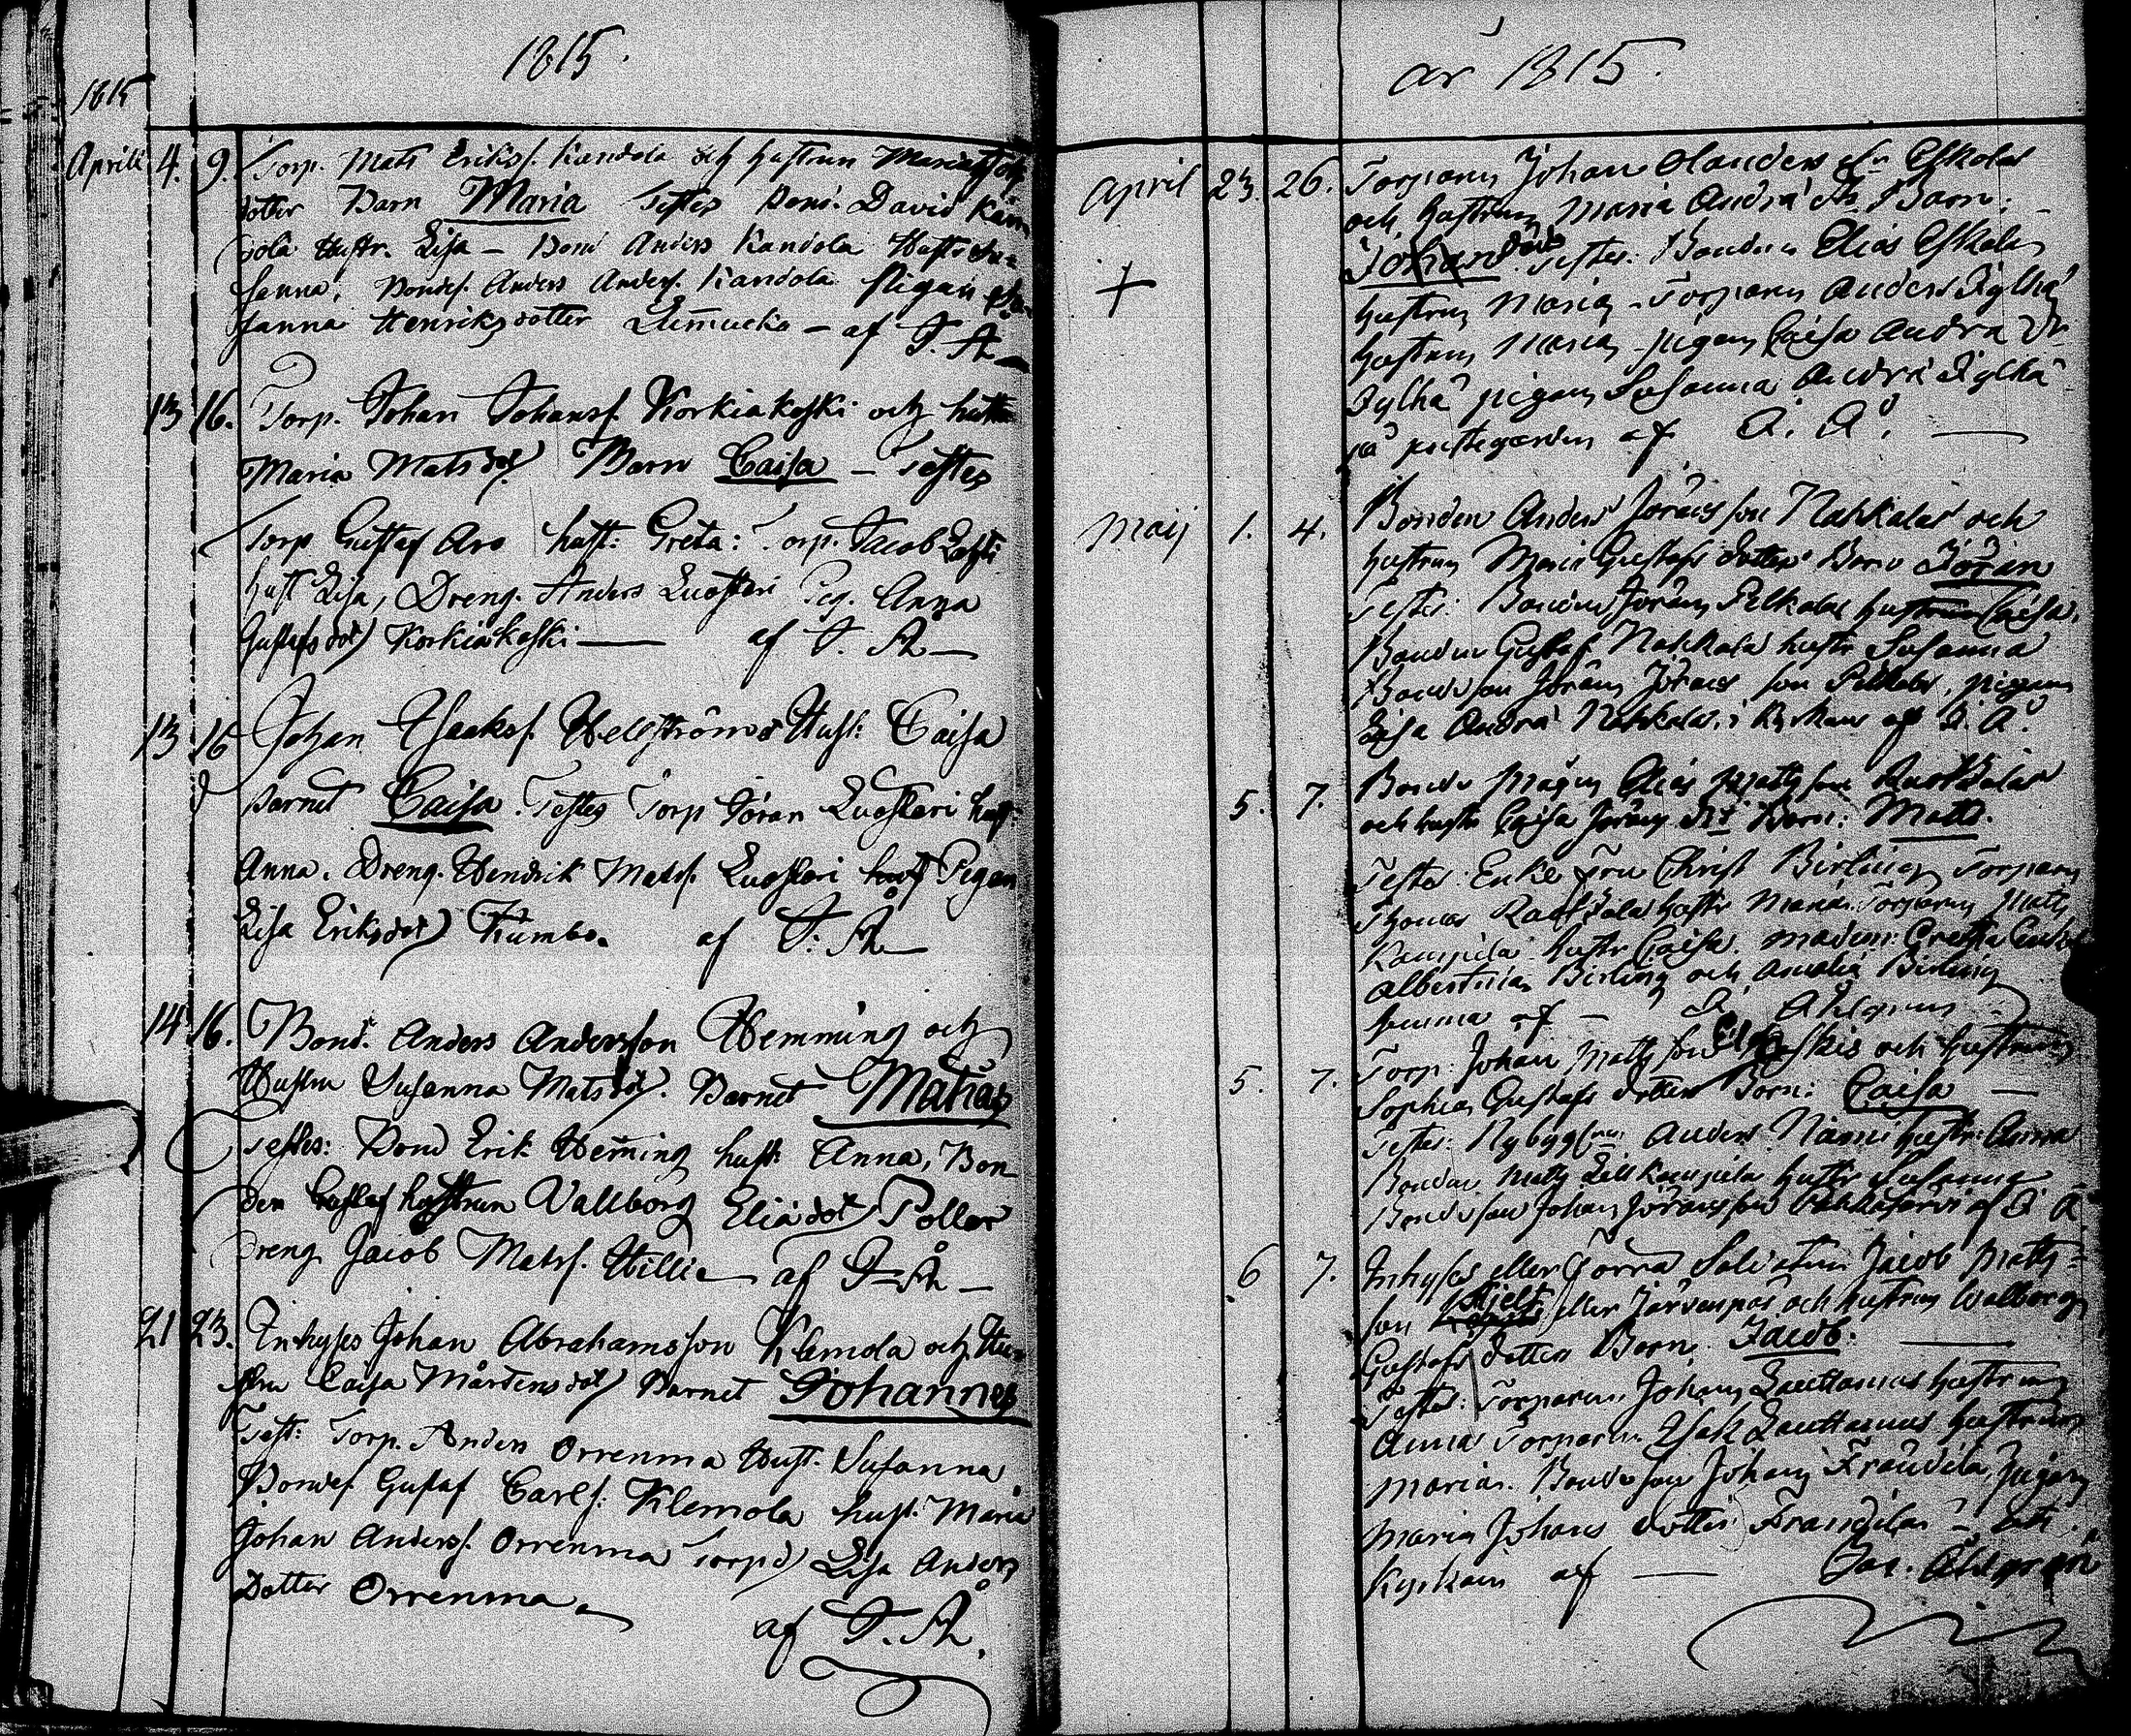 1815.
1815
Aprill 4. 9. Torp. Mats Eriksf. Kandola och hustrun Maria
dotter Barn Maria Testes Bond. David Kan
dola Hustr. Lisa – Bond Anders Kandola Hustr Su=
sanna, Bondes. Anders Andersf. Kandola Pigan Su=
sanna Henriksdotter Lemucka – af J. Å
13 16. Torp. Johan Johansf. Korkiakoski och hust
Maria Matsdot Barn Caisa – Testes
Torp Gustaf Aro hust: Greta: Torp. Jacob
hust Lisa, Dreng. Anders Luostari Pig. Anna
Gustafsdot Korkiakoski — af J. Å
13 16 Johan Isaaksf. Hellströms Hust: Caisa
Barnet Caisa. Testes Torp Jöran Luostari hust:
Anna. Dreng. Hendrik Matsf. Luostari Pigan
Lisa Eriksdot Kumbo. af J: Å
14 16. Bond. Anders Andersson Hemming och
Hustru Susanna Matsdot. Barnet Mathias
Testes: Bond Erik Hem̄ing hust: Anna, Bon
den Gustaf hustrun Vallborg Eliædot Pollar
Dreng Jacob Matsf. Hillie af J. Å —
21 23. Inhyses Johan Abrahamsson Klemola och Hu
stru Caisa Mårtensdot Barnet Johannes
Test: Torp. Anders Orrenma Hust. Susanna
Bondes. Gustaf Carlf: Klemola hust. Maria
Johan Andersf. Orrenma Torpd Lisa Anders
Dotter Orrenma
af J. Å.
år 1815.
April 23. 26. Torparen Johan Olanders Eskolas
och hustrun Maria Andræ Dr Barn:
Johan Testes: Bonden Elias Eskola
+
hustrun Maria – Torparen Anders Jylhä
hustrun Maria – pigan Caisa Andræ Dr
Jylhä pigan Susanna Andræ Jylhä
på prestegården af J. Å. —
Maij 1. 4. Bonden Anders Jöransson Nahkalas och
hustrun Maria Gustafs dotter Barn Jöran
Testes: Bonden Jöran Pelkalas hustrun Caisa.
Bonden Gustaf Nahkala hustr Susanna
Bondeson Jöran Jörans son Pelkalas, pigan
Lisa Andræ Nahkalas, i Kyrkan af J. Å.
5. 7. Bonde mågen Elias Matsson
och hustr Caisa Jörans Dr Barn: Matts.
Testes: Enke Fru Christ Birling Torparen
Thomas hustr Maria. Torparen Matts
Kampila hustr Caisa. Madem: Gretha
Albertina Birling och Amalia Birling
hemma af – J. Åhlgren
5. 7. Torp: Johan Mattsson och hustrun
Sophia Gustafs dotter Barn: Caisa —
Testes: Nybyggren Anders Niemi hustr: Anna
Bonden Matts Lill Kampila hustr Susanna
Bondeson Johan Jöransson af J Å
6 7. Inhyses eller Förra Soldaten Jacob Matts=
son Hjelt eller Järvenpää och hustrun Walborg
Gustafs dotter Barn. Jacob: —
Testes: Torparen Johan Lauttamus hustrun
Anna Torparen Isak Lauttamus hustrun
Maria. Bondeson Johan Frandila, pigan
Maria Johans dotter Frandila –
Kyrkan af — Jac. Åhlgren